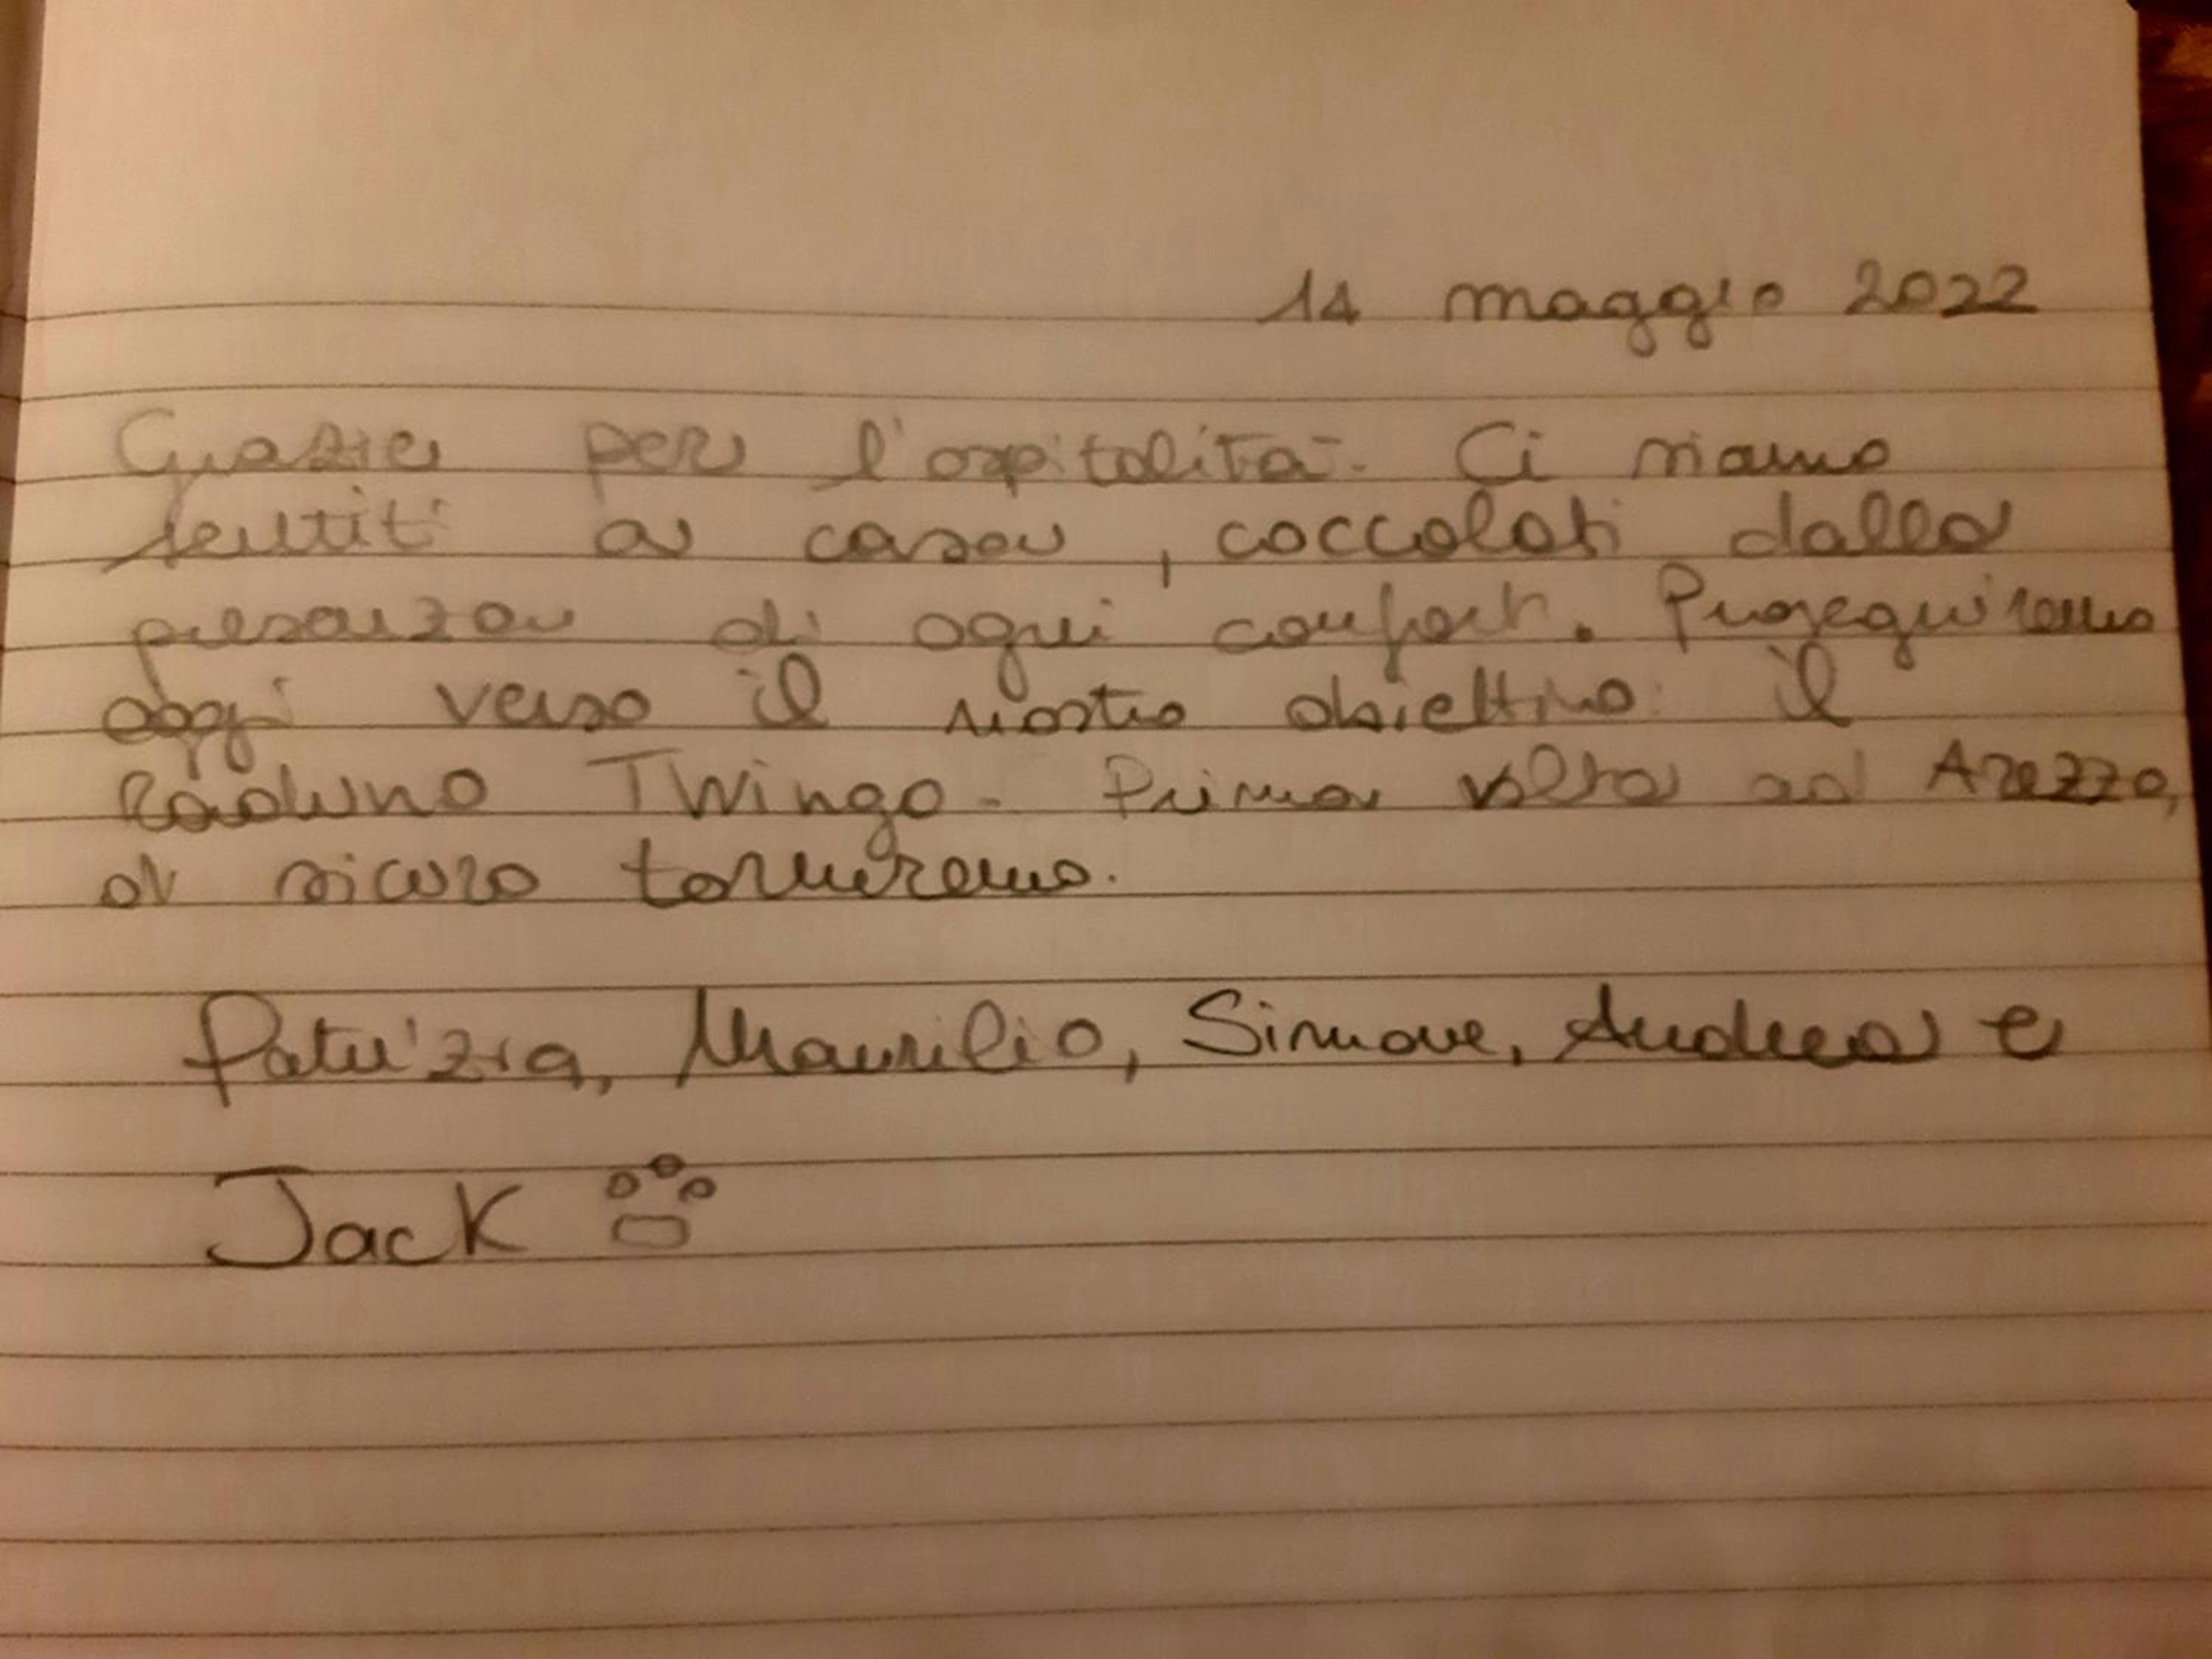 14 maggio 2022
Grazie per l'ospitalità. Ci siamo
sentiti a casa, coccolati dalla
presenza di ogni confort. Proseguiremo
oggi verso il nostro obiettivo: il
Raduno Twingo. Prima volta ad Arezzo,
di sicuro torneremo.
Patrizia, Maurilio, Simone, Andrea e
Jack